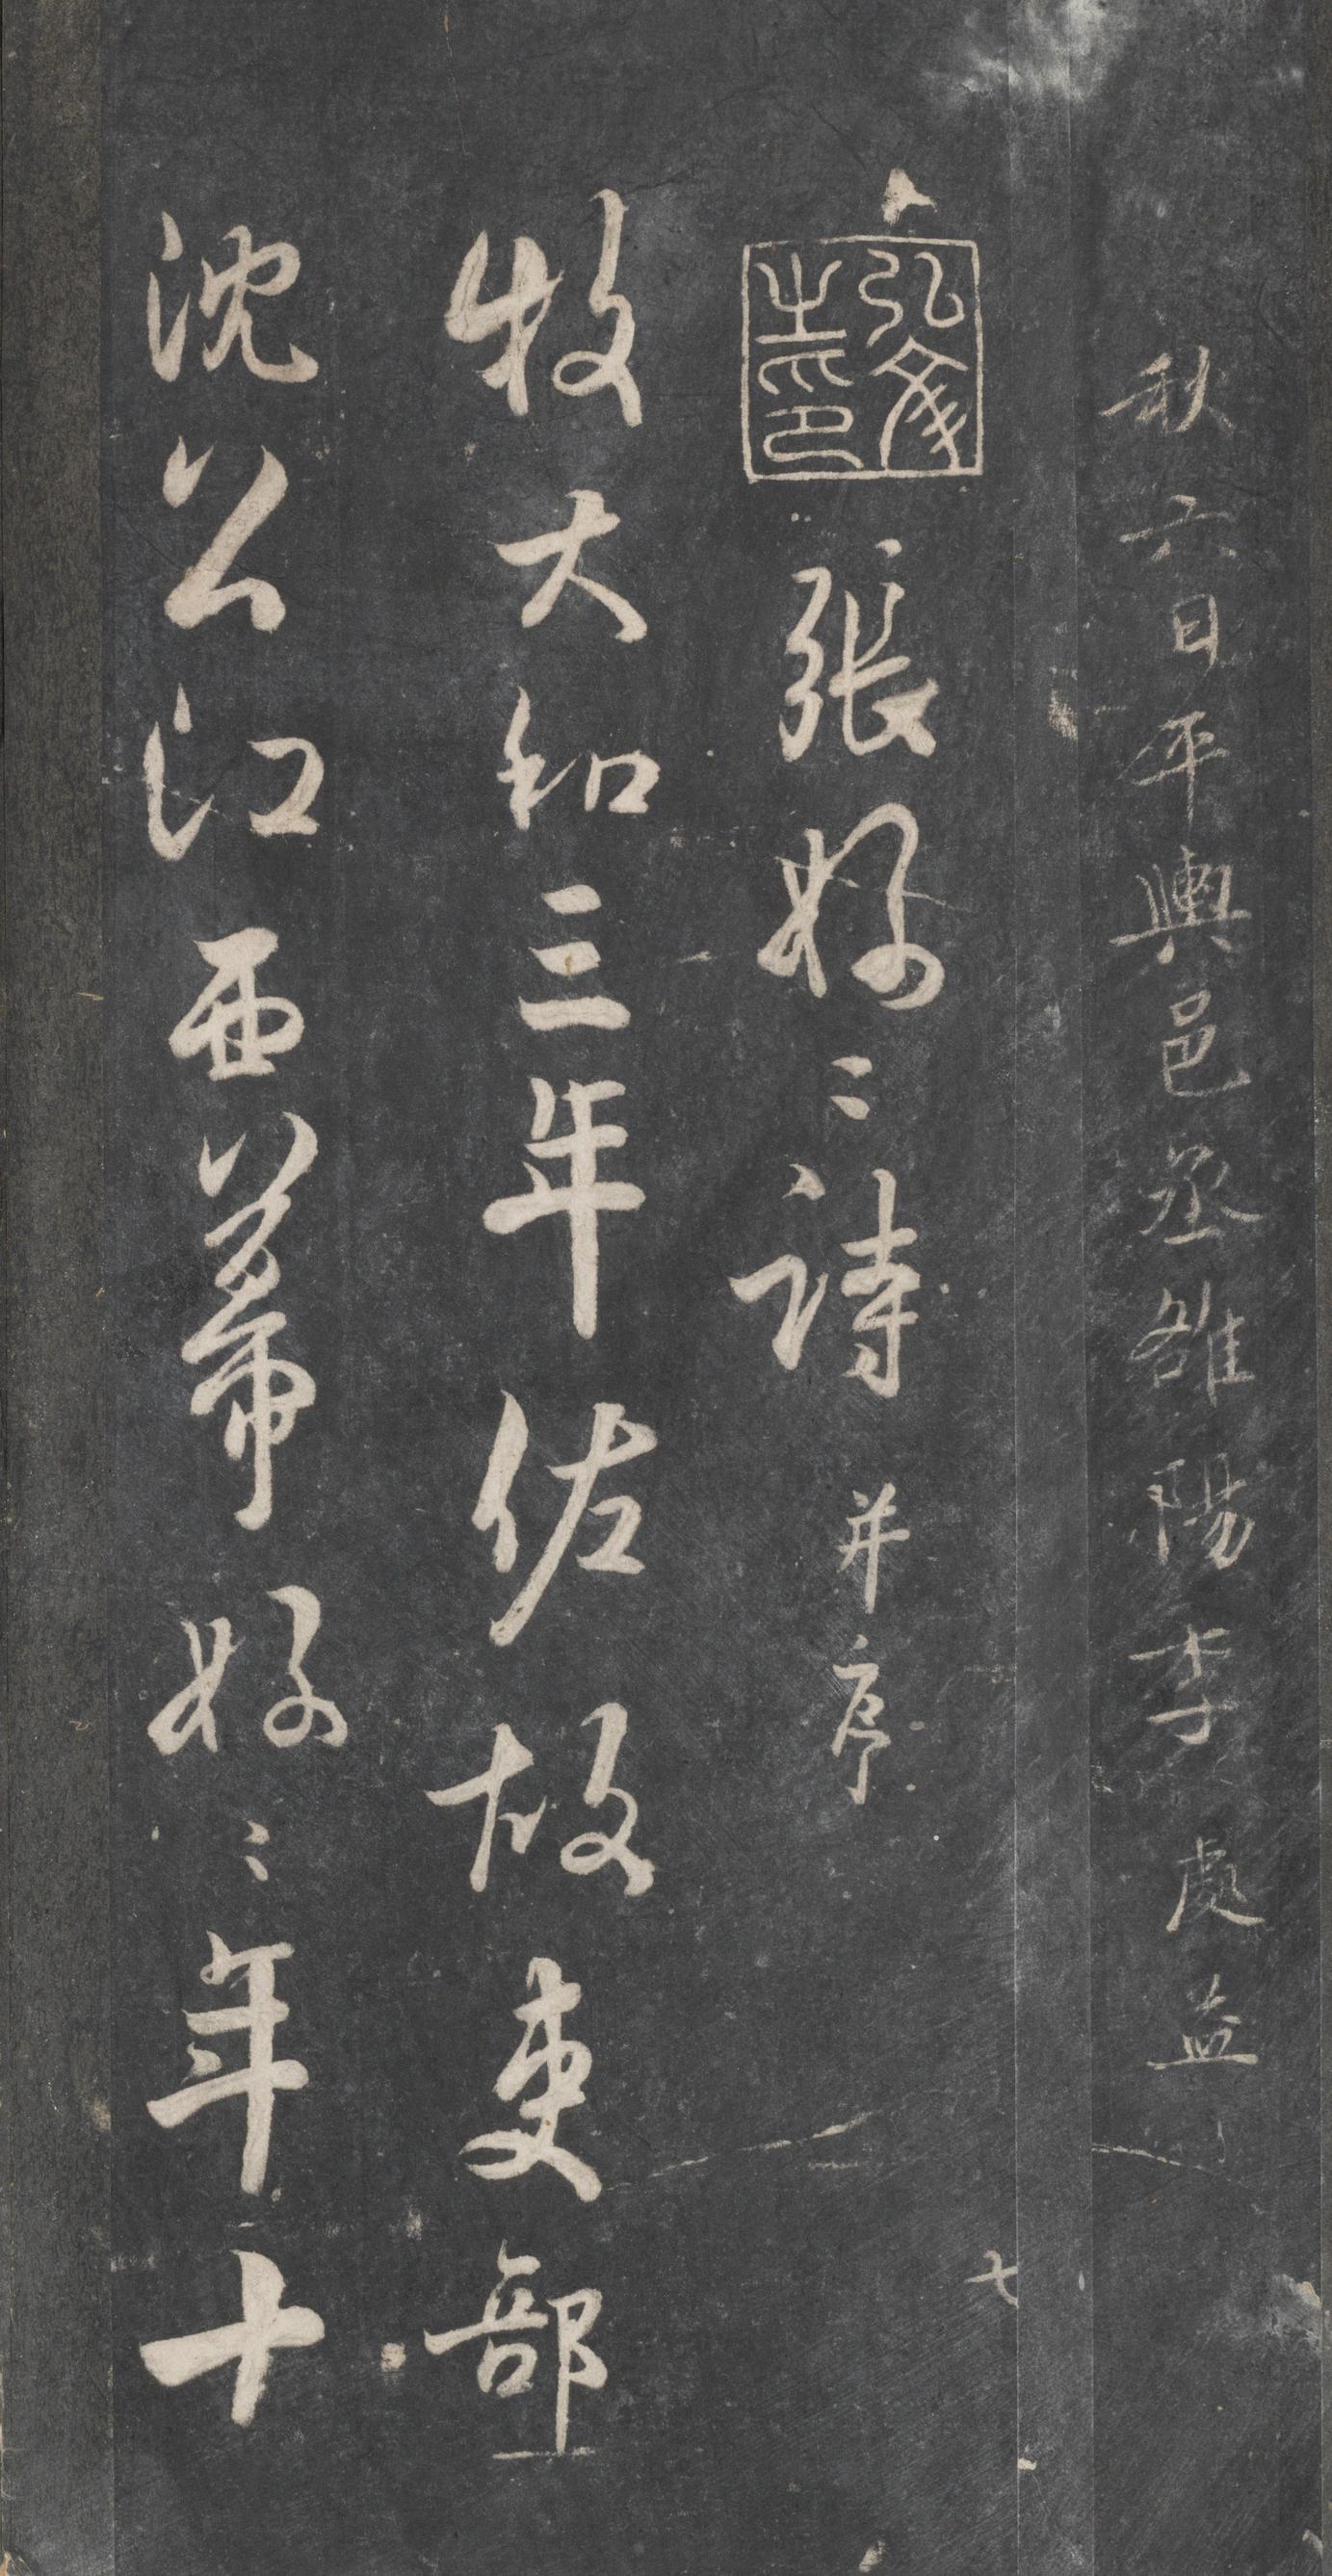 秋六日平輿邑丞雒陽李處益
弘文之印
張好〻詩并序
牧大和三年佐故吏部
沈公江西幕好〻年十
七